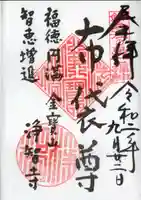 奉拝
令和二年
九月廿二日
布袋尊
福徳円満
金寶山
浄智寺
智恵増進